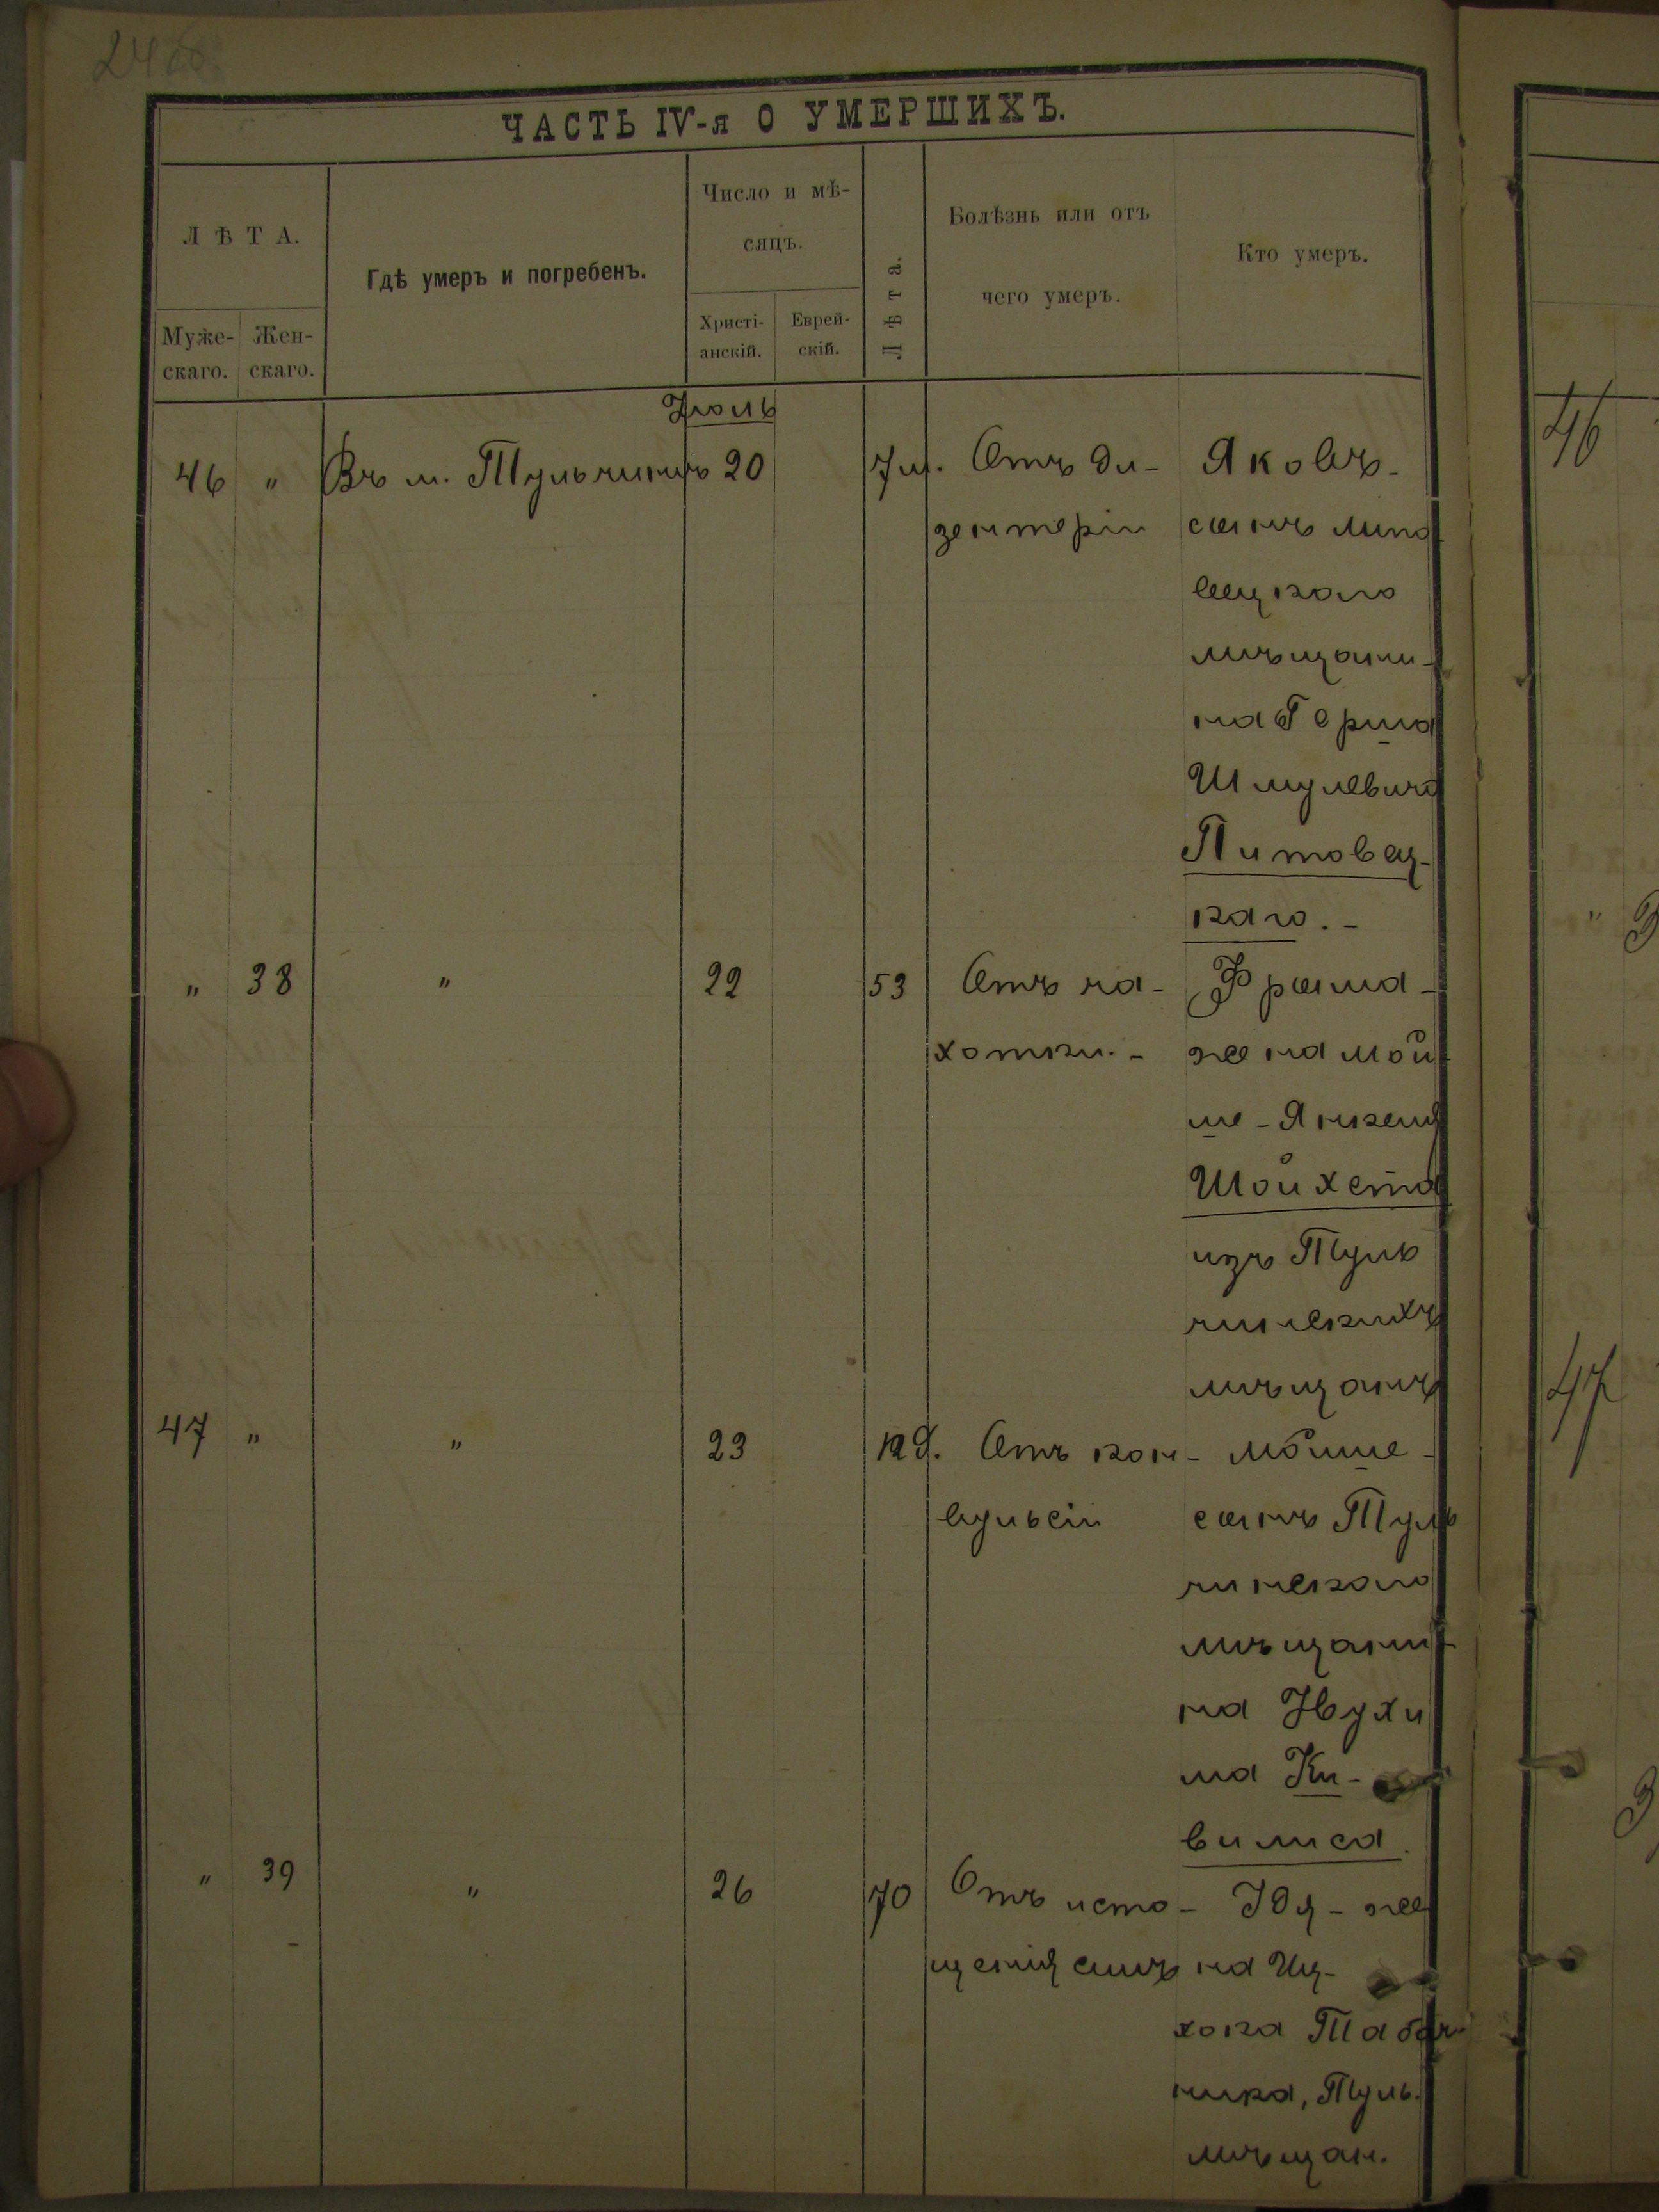 ЧАСТЬ IV-я О УМЕРШИХЪ.
ЛѢТА.
Муже-
скаго.
Жен-
скаго.
Гдѣ умеръ и погребенъ.
Число и мѣ-
сяцъ.
Христі-
анскій.
Еврей-
скій.
Лѣта.
Болѣзнь или отъ
чего умеръ.
Кто умеръ.
Іюль
46 " Въ м. Тульчинѣ 20 7 м. Отъ ди- Яковъ-
зентеріи сынъ липо
вецкого
мѣщани-
на Герша
Шмулевича
Питовец-
каго.-
" 38 " 22 53 Отъ ча- Фрыма-
хотки.- жена Мой
ше-Янкеля
Шойхета
изъ Туль
чинскихъ
мѣщанъ
47 " " 23 12 д. Отъ кон- Мойше-
вульсіи сынъ Туль
чинского
мѣщани-
на Нухи
ма Ки-
вилиса.
" 39 " 26 70 Отъ исто- же
щенія силъ на Иц-
хока Табач
ника, Туль.
мѣщан.
46
"
47